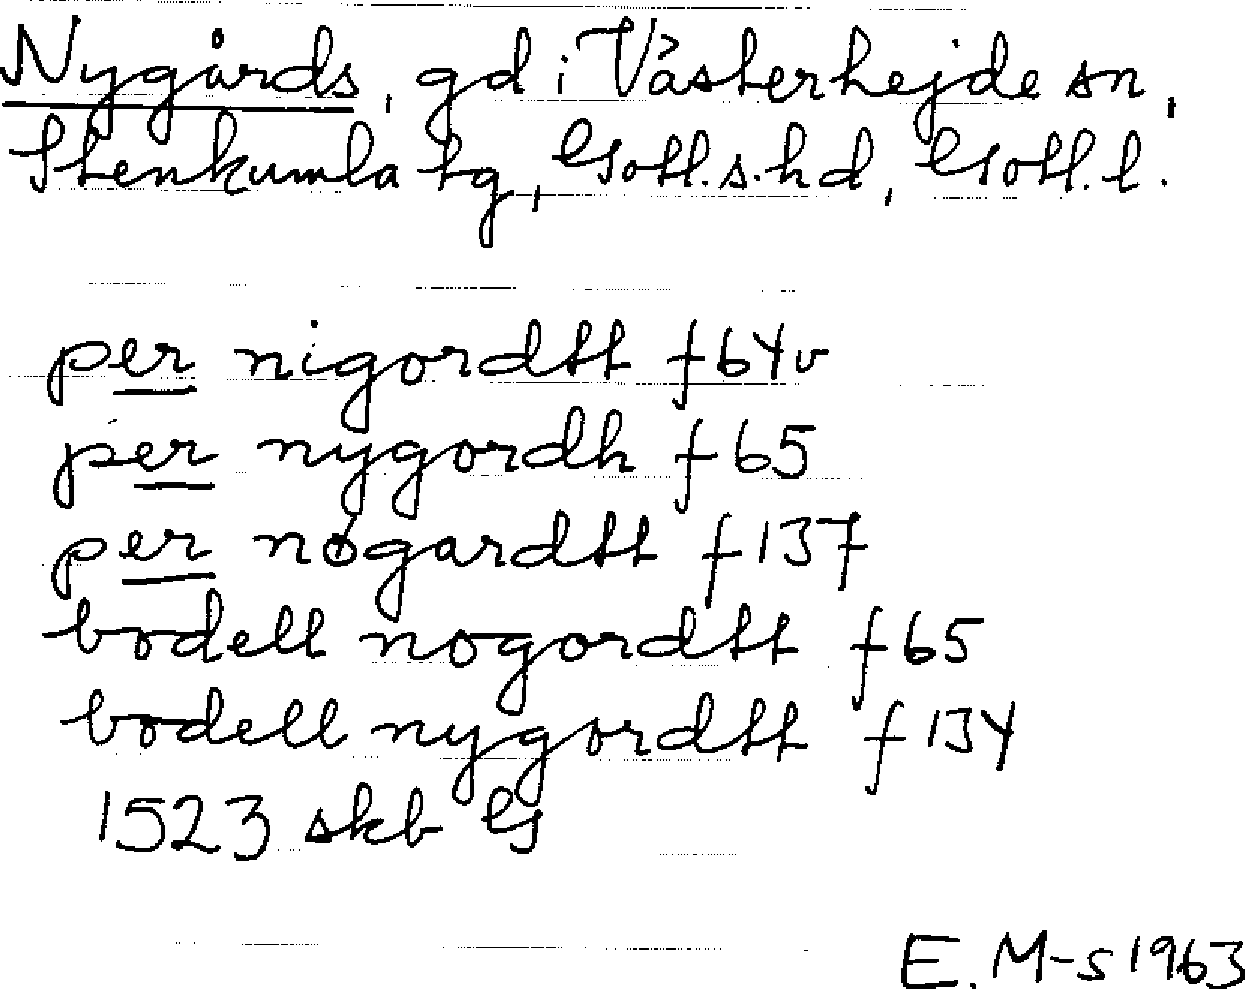 Nygårds, gd i Västerhejde sn,
Stenkumla tg, Gotl.s.hd, Gotl.l.
per nigordtt f 64v
per nygordh f 65
per nögardtt f 137
bodell nogordtt f 65
bodell nygordtt f 134
1523 skb G
E. M-s 1963